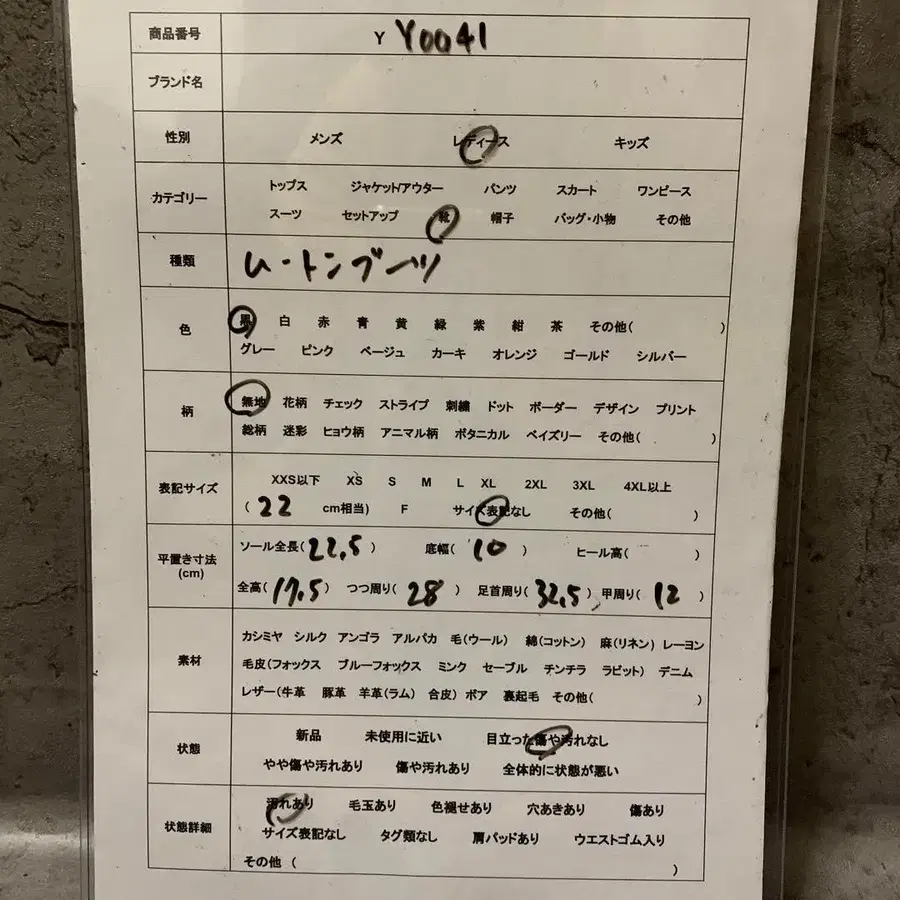 商品番号 Y Y0041
ブランド名
性別 メンズ レディース キッズ
カテゴリー
トップス ジャケット/アウター パンツ スカート ワンピース
スーツ セットアップ 靴 帽子 バッグ・小物 その他
種類 ムートンブーツ
色
黒 白 赤 青 黄 緑 紫 紺 茶 その他( )
グレー ピンク ベージュ カーキ オレンジ ゴールド シルバー
柄
無地 花柄 チェック ストライプ 刺繍 ドット ボーダー デザイン プリント
総柄 迷彩 ヒョウ柄 アニマル柄 ボタニカル ペイズリー その他( )
表記サイズ
XXS以下 XS S M L XL 2XL 3XL 4XL以上
( 22 cm相当) F サイズ表記なし その他( )
平置き寸法
(cm)
ソール全長( 22.5 ) 底幅( 10 ) ヒール高( )
全高( 17.5 ) つつ周り( 28 ) 足首周り( 32.5 ) 甲周り( 12 )
素材
カシミヤ シルク アンゴラ アルパカ 毛(ウール) 綿(コットン) 麻(リネン) レーヨン
毛皮(フォックス ブルーフォックス ミンク セーブル チンチラ ラビット) デニム
レザー(牛革 豚革 羊革(ラム) 合皮) ボア 裏起毛 その他( )
状態
新品 未使用に近い 目立った傷や汚れなし
やや傷や汚れあり 傷や汚れあり 全体的に状態が悪い
状態詳細
汚れあり 毛玉あり 色褪せあり 穴あきあり 傷あり
サイズ表記なし タグ類なし 肩パッドあり ウエストゴム入り
その他 ( )